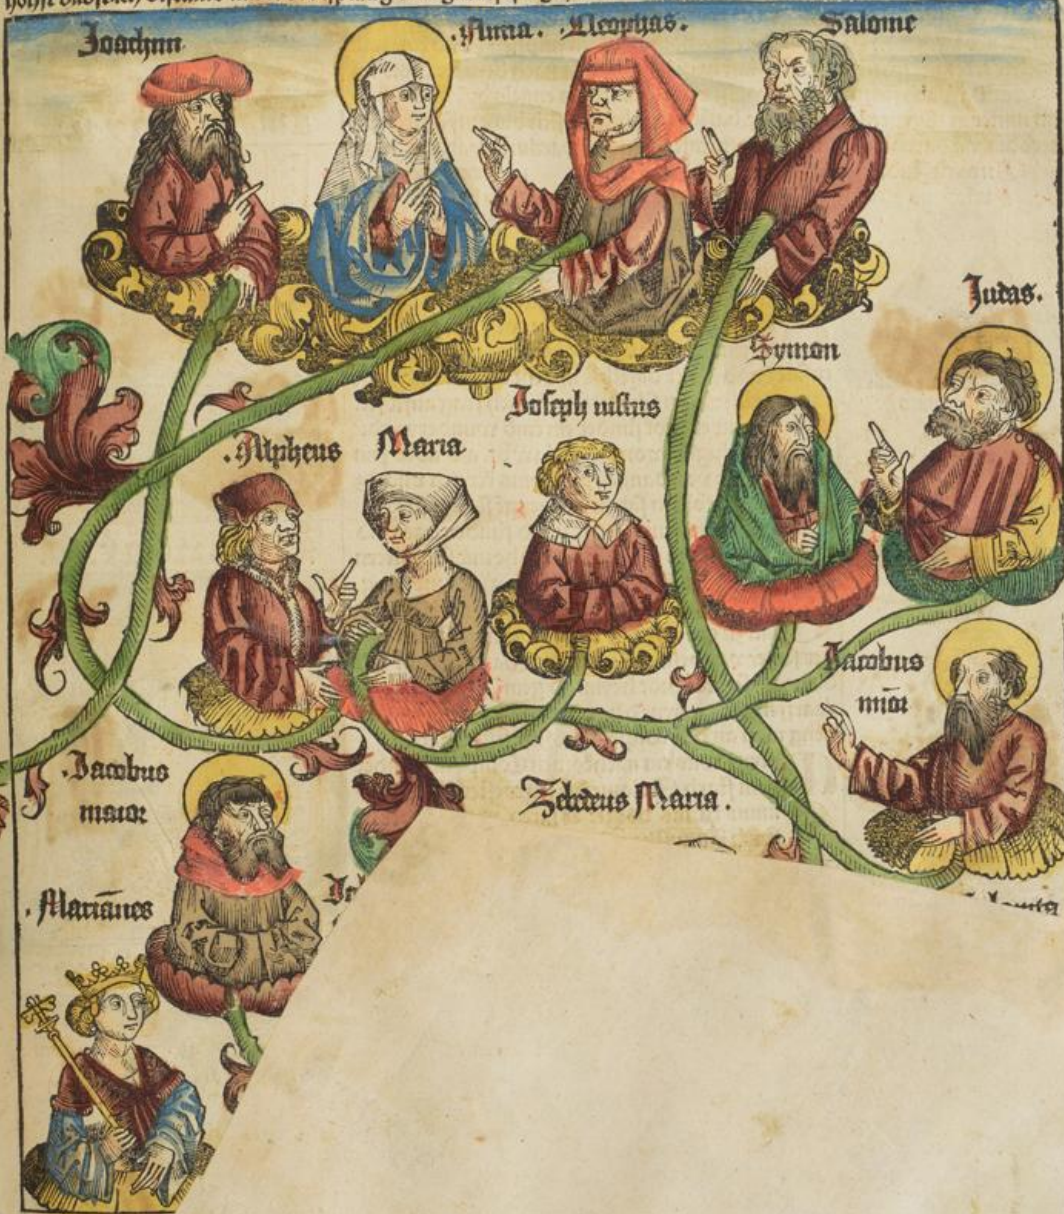 Joachim
.Anna. .Cleophas.
Salome
Judas.
Symon
Joseph iustus
.Alpheus Maria
Jacobus
mior
.Jacobus
maior
Zebedeus Maria.
.Mariānes